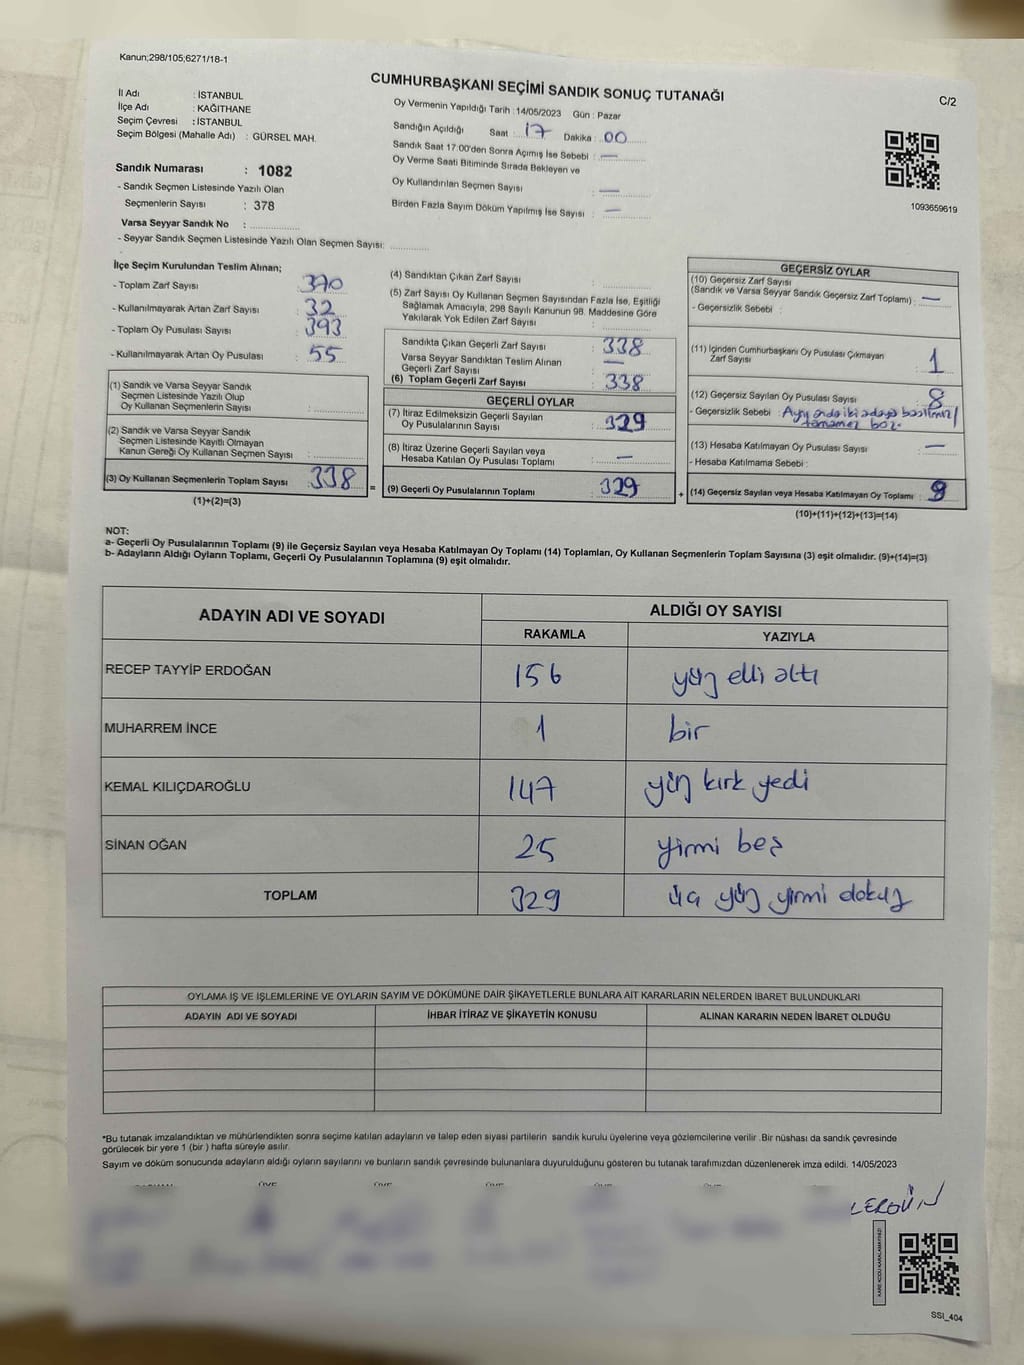 Kanun;298/105;6271/18-1
CUMHURBAŞKANI SEÇİMİ SANDIK SONUÇ TUTANAĞI
C/2
İl Adı : İSTANBUL
İlçe Adı : KAĞITHANE
Seçim Çevresi : İSTANBUL
Seçim Bölgesi (Mahalle Adı) : GÜRSEL MAH.
Oy Vermenin Yapıldığı Tarih : 14/05/2023 Gün : Pazar
Sandığın Açıldığı Saat : 17 Dakika : 00
Sandık Saat 17:00'den Sonra Açımış İse Sebebi : —
Oy Verme Saati Bitiminde Sırada Bekleyen ve
Oy Kullandırılan Seçmen Sayısı : —
Birden Fazla Sayım Döküm Yapılmış İse Sayısı : —
1093659619
Sandık Numarası : 1082
- Sandık Seçmen Listesinde Yazılı Olan
Seçmenlerin Sayısı : 378
Varsa Seyyar Sandık No :
- Seyyar Sandık Seçmen Listesinde Yazılı Olan Seçmen Sayısı:
İlçe Seçim Kurulundan Teslim Alınan;
- Toplam Zarf Sayısı : 370
- Kullanılmayarak Artan Zarf Sayısı : 32
- Toplam Oy Pusulası Sayısı : 393
- Kullanılmayarak Artan Oy Pusulası : 55
(1) Sandık ve Varsa Seyyar Sandık
Seçmen Listesinde Yazılı Olup
Oy Kullanan Seçmenlerin Sayısı :
(2) Sandık ve Varsa Seyyar Sandık
Seçmen Listesinde Kayıtlı Olmayan
Kanun Gereği Oy Kullanan Seçmen Sayısı :
(3) Oy Kullanan Seçmenlerin Toplam Sayısı : 338 =
(1)+(2)=(3)
(4) Sandıktan Çıkan Zarf Sayısı :
(5) Zarf Sayısı Oy Kullanan Seçmen Sayısından Fazla İse, Eşitliği
Sağlamak Amacıyla, 298 Sayılı Kanunun 98. Maddesine Göre
Yakılarak Yok Edilen Zarf Sayısı :
Sandıkta Çıkan Geçerli Zarf Sayısı : 338
Varsa Seyyar Sandıktan Teslim Alınan
Geçerli Zarf Sayısı : —
(6) Toplam Geçerli Zarf Sayısı : 338
GEÇERLİ OYLAR
(7) İtiraz Edilmeksizin Geçerli Sayılan
Oy Pusulalarının Sayısı : 329
(8) İtiraz Üzerine Geçerli Sayılan veya
Hesaba Katılan Oy Pusulası Toplamı : —
(9) Geçerli Oy Pusulalarının Toplamı : 329 +
GEÇERSİZ OYLAR
(10) Geçersiz Zarf Sayısı
(Sandık ve Varsa Seyyar Sandık Geçersiz Zarf Toplamı) : —
- Geçersizlik Sebebi :
(11) İçinden Cumhurbaşkanı Oy Pusulası Çıkmayan
Zarf Sayısı : 1
(12) Geçersiz Sayılan Oy Pusulası Sayısı : 8
- Geçersizlik Sebebi : Aynı anda iki adaya
(13) Hesaba Katılmayan Oy Pusulası Sayısı : —
- Hesaba Katılmama Sebebi :
(14) Geçersiz Sayılan veya Hesaba Katılmayan Oy Toplamı : 9
(10)+(11)+(12)+(13)=(14)
NOT:
a- Geçerli Oy Pusulalarının Toplamı (9) ile Geçersiz Sayılan veya Hesaba Katılmayan Oy Toplamı (14) Toplamları, Oy Kullanan Seçmenlerin Toplam Sayısına (3) eşit olmalıdır. (9)+(14)=(3)
b- Adayların Aldığı Oyların Toplamı, Geçerli Oy Pusulalarının Toplamına (9) eşit olmalıdır.
ADAYIN ADI VE SOYADI ALDIĞI OY SAYISI
RAKAMLA YAZIYLA
RECEP TAYYİP ERDOĞAN 156 yüz elli altı
MUHARREM İNCE 1 bir
KEMAL KILIÇDAROĞLU 147 yüz kırk yedi
SİNAN OĞAN 25 yirmi beş
TOPLAM 329 üç yüz yirmi dokuz
OYLAMA İŞ VE İŞLEMLERİNE VE OYLARIN SAYIM VE DÖKÜMÜNE DAİR ŞİKAYETLERLE BUNLARA AİT KARARLARIN NELERDEN İBARET BULUNDUKLARI
ADAYIN ADI VE SOYADI İHBAR İTİRAZ VE ŞİKAYETİN KONUSU ALINAN KARARIN NEDEN İBARET OLDUĞU
*Bu tutanak imzalandıktan ve mühürlendikten sonra seçime katılan adayların ve talep eden siyasi partilerin sandık kurulu üyelerine veya gözlemcilerine verilir .Bir nüshası da sandık çevresinde
görülecek bir yere 1 (bir ) hafta süreyle asılır.
Sayım ve döküm sonucunda adayların aldığı oyların sayılarını ve bunların sandık çevresinde bulunanlara duyurulduğunu gösteren bu tutanak tarafımızdan düzenlenerek imza edildi. 14/05/2023
KARE KODU KARALAMAYINIZ!
SSI_404